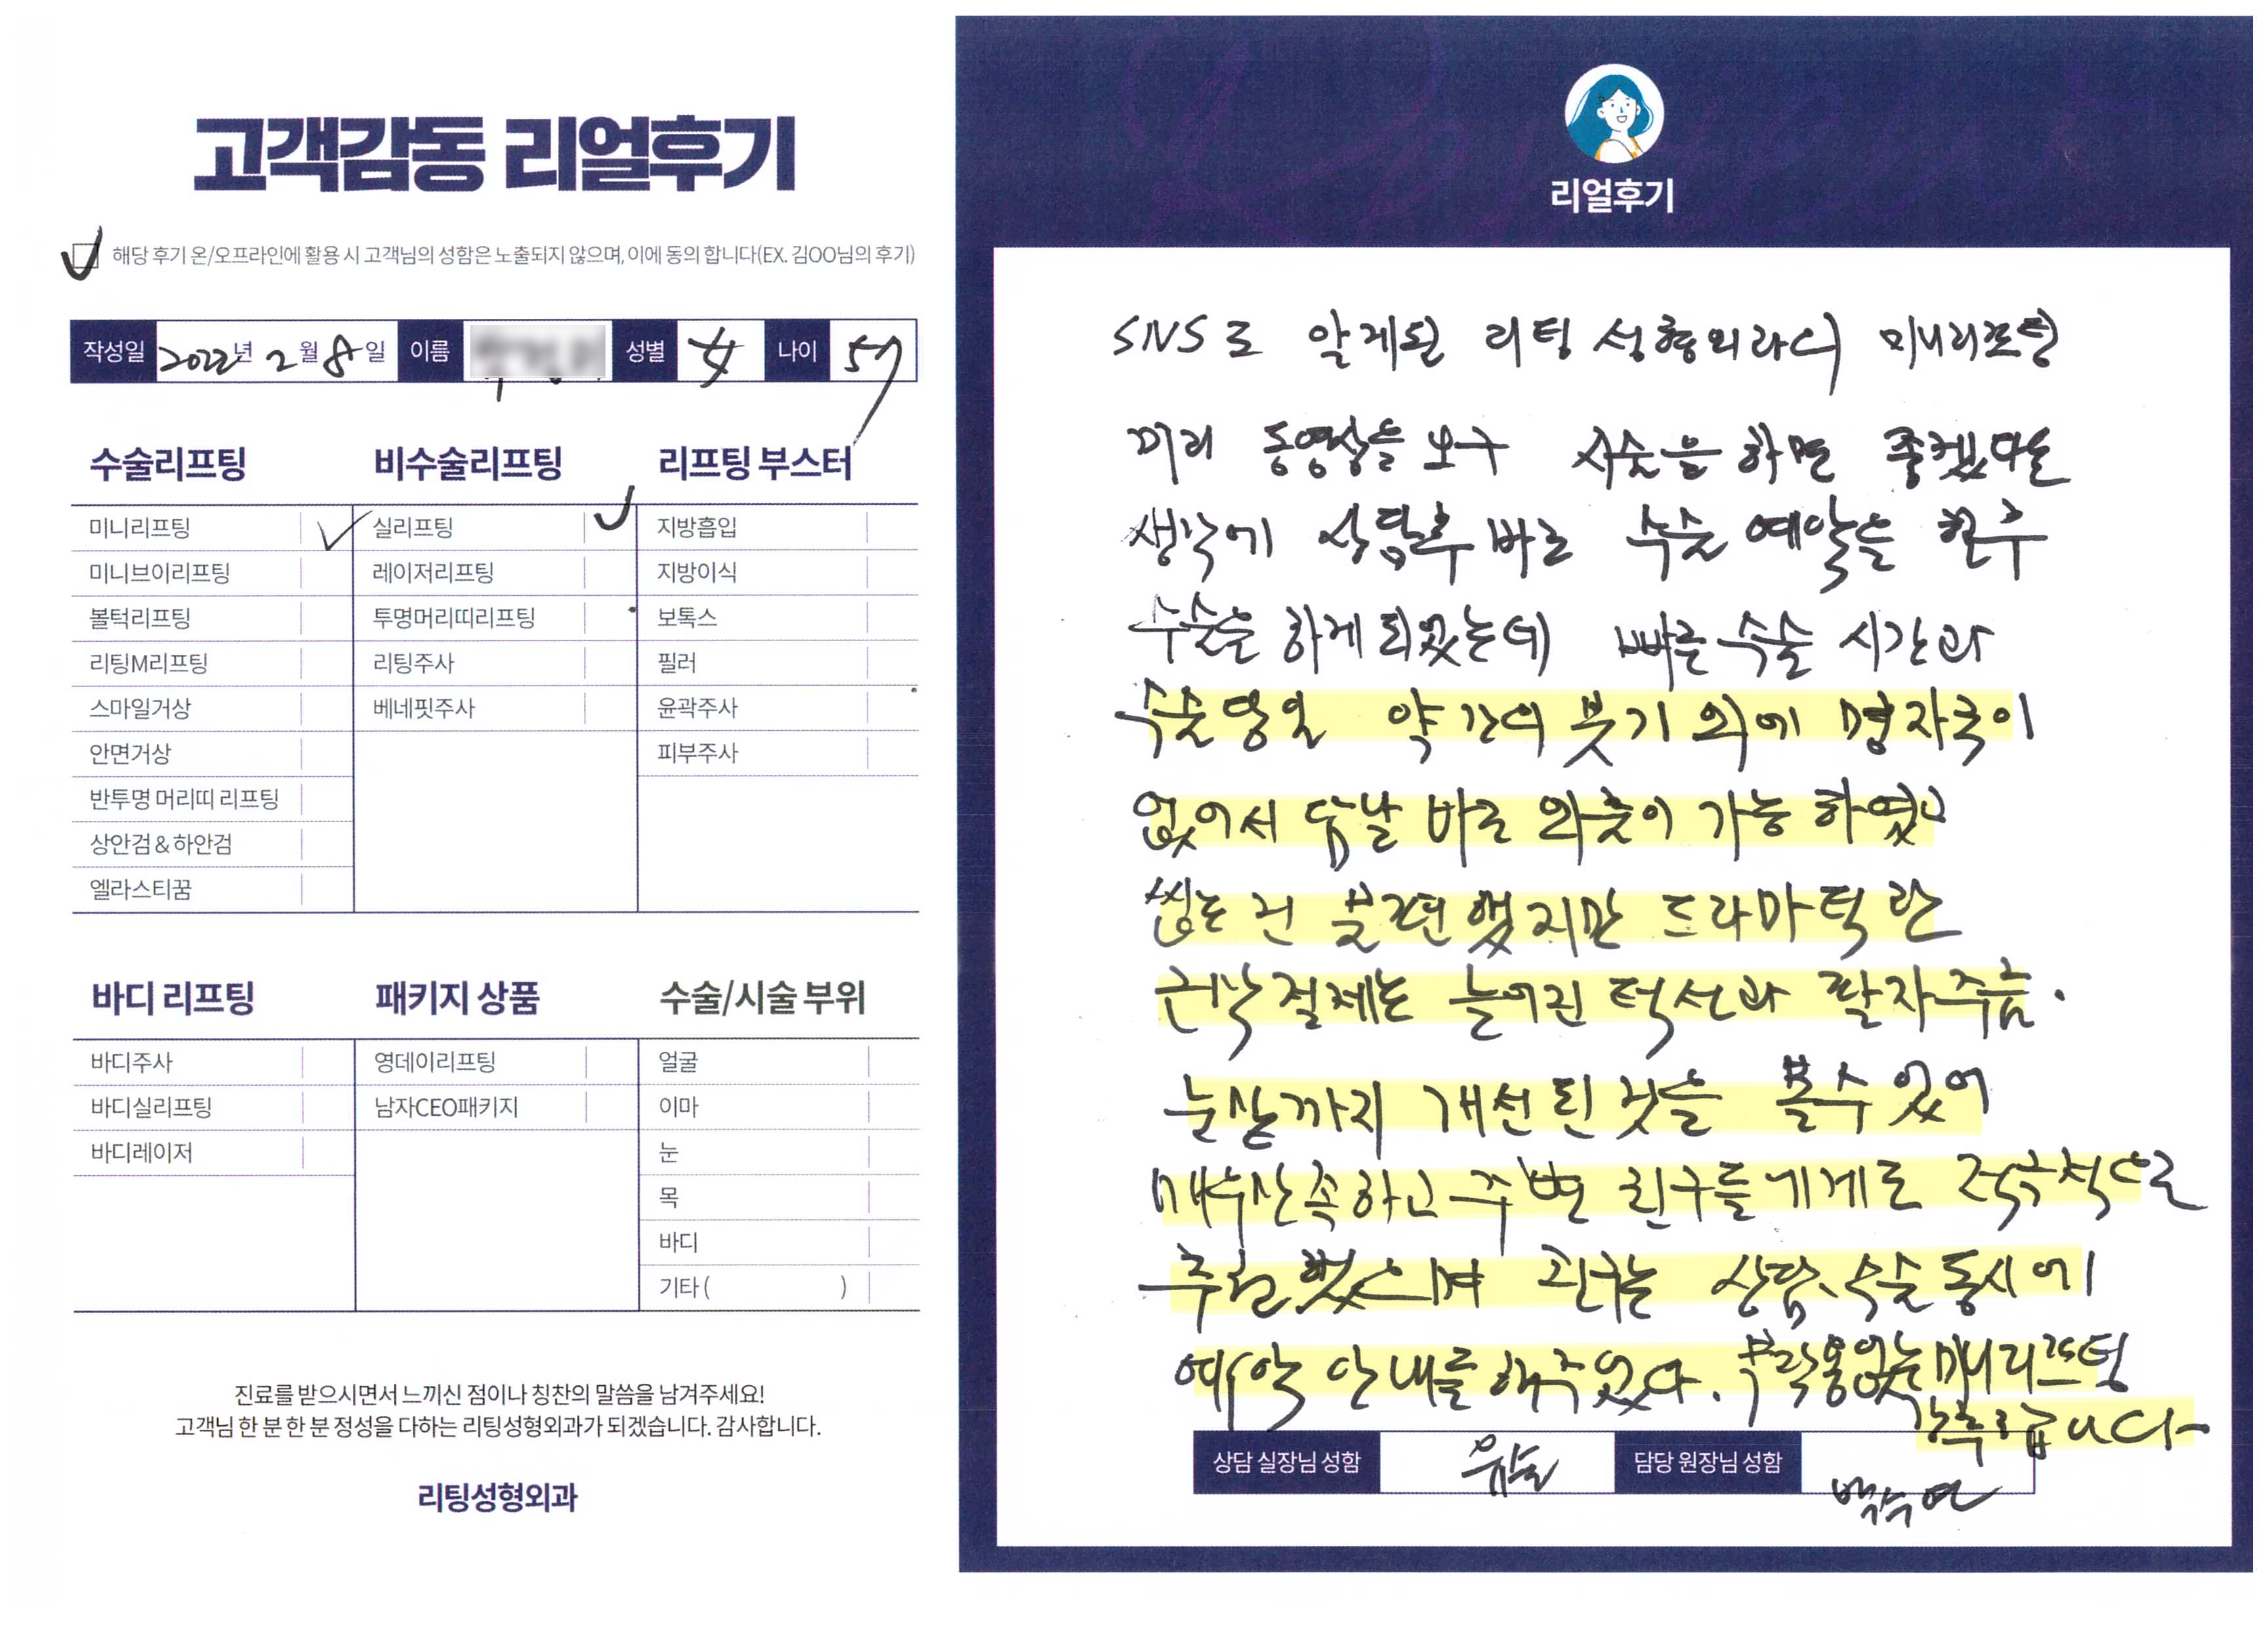 고객감동 리얼후기
해당 후기 온/오프라인에 활용 시 고객님의 성함은 노출되지 않으며, 이에 동의 합니다(EX. 김OO님의 후기)
작성일 2022년 2월 8일 이름 성별 女 나이 57
수술리프팅
미니리프팅
미니브이리프팅
볼턱리프팅
리팅M리프팅
스마일거상
안면거상
반투명 머리띠 리프팅
상안검 & 하안검
엘라스티꿈
비수술리프팅
실리프팅
레이저리프팅
투명머리띠리프팅
리팅주사
베네핏주사
리프팅 부스터
지방흡입
지방이식
보톡스
필러
윤곽주사
피부주사
바디 리프팅
바디주사
바디실리프팅
바디레이저
패키지 상품
영데이리프팅
남자CEO패키지
수술/시술 부위
얼굴
이마
눈
목
바디
기타 ( )
진료를 받으시면서 느끼신 점이나 칭찬의 말씀을 남겨주세요!
고객님 한 분 한 분 정성을 다하는 리팅성형외과가 되겠습니다. 감사합니다.
리팅성형외과
리얼후기
SNS로 알게된 리팅 성형외과의 미니리프팅
미리 동영상을 보구 시술을 하면 좋겠다는
생각에 상담후 바로 수술 예약을 한후
수술을 하게 되었는데 빠른 수술 시간과
수술 당일 약간의 붓기 외에 멍자국이
없어서 담날 바로 외출이 가능 하였고
씹는건 불편했지만 드라마틱한
근막절제는 늘어진 턱선과 팔자주름.
눈살까지 개선된 것을 볼수 있어
매우만족하고 주변 친구들에게로 적극적으로
추천했으며 친구는 상담, 수술 동시에
예약 안내를 해주었다. 부작용없는 미니리프팅
강추드립니다~
상담 실장님 성함 유솔 담당 원장님 성함
백수연